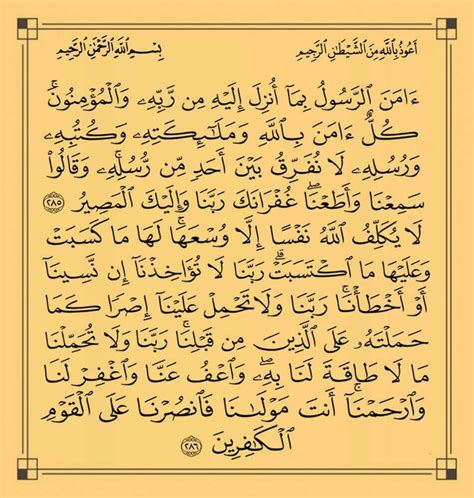 أَعُوذُ بِٱللَّهِ مِنَ ٱلشَّيْطَٰنِ ٱلرَّجِيمِ
بِسْمِ ٱللَّهِ ٱلرَّحْمَٰنِ ٱلرَّحِيمِ
ءَامَنَ ٱلرَّسُولُ بِمَآ أُنزِلَ إِلَيْهِ مِن رَّبِّهِۦ وَٱلْمُؤْمِنُونَۚ
كُلٌّ ءَامَنَ بِٱللَّهِ وَمَلَٰٓئِكَتِهِۦ وَكُتُبِهِۦ
وَرُسُلِهِۦ لَا نُفَرِّقُ بَيْنَ أَحَدٍ مِّن رُّسُلِهِۦۚ وَقَالُوا۟
سَمِعْنَا وَأَطَعْنَاۖ غُفْرَانَكَ رَبَّنَا وَإِلَيْكَ ٱلْمَصِيرُ ٢٨٥
لَا يُكَلِّفُ ٱللَّهُ نَفْسًا إِلَّا وُسْعَهَاۚ لَهَا مَا كَسَبَتْ
وَعَلَيْهَا مَا ٱكْتَسَبَتْۗ رَبَّنَا لَا تُؤَاخِذْنَآ إِن نَّسِينَآ
أَوْ أَخْطَأْنَاۚ رَبَّنَا وَلَا تَحْمِلْ عَلَيْنَآ إِصْرًا كَمَا
حَمَلْتَهُۥ عَلَى ٱلَّذِينَ مِن قَبْلِنَاۚ رَبَّنَا وَلَا تُحَمِّلْنَا
مَا لَا طَاقَةَ لَنَا بِهِۦۖ وَٱعْفُ عَنَّا وَٱغْفِرْ لَنَا
وَٱرْحَمْنَآۚ أَنتَ مَوْلَىٰنَا فَٱنصُرْنَا عَلَى ٱلْقَوْمِ
ٱلْكَٰفِرِينَ ٢٨٦